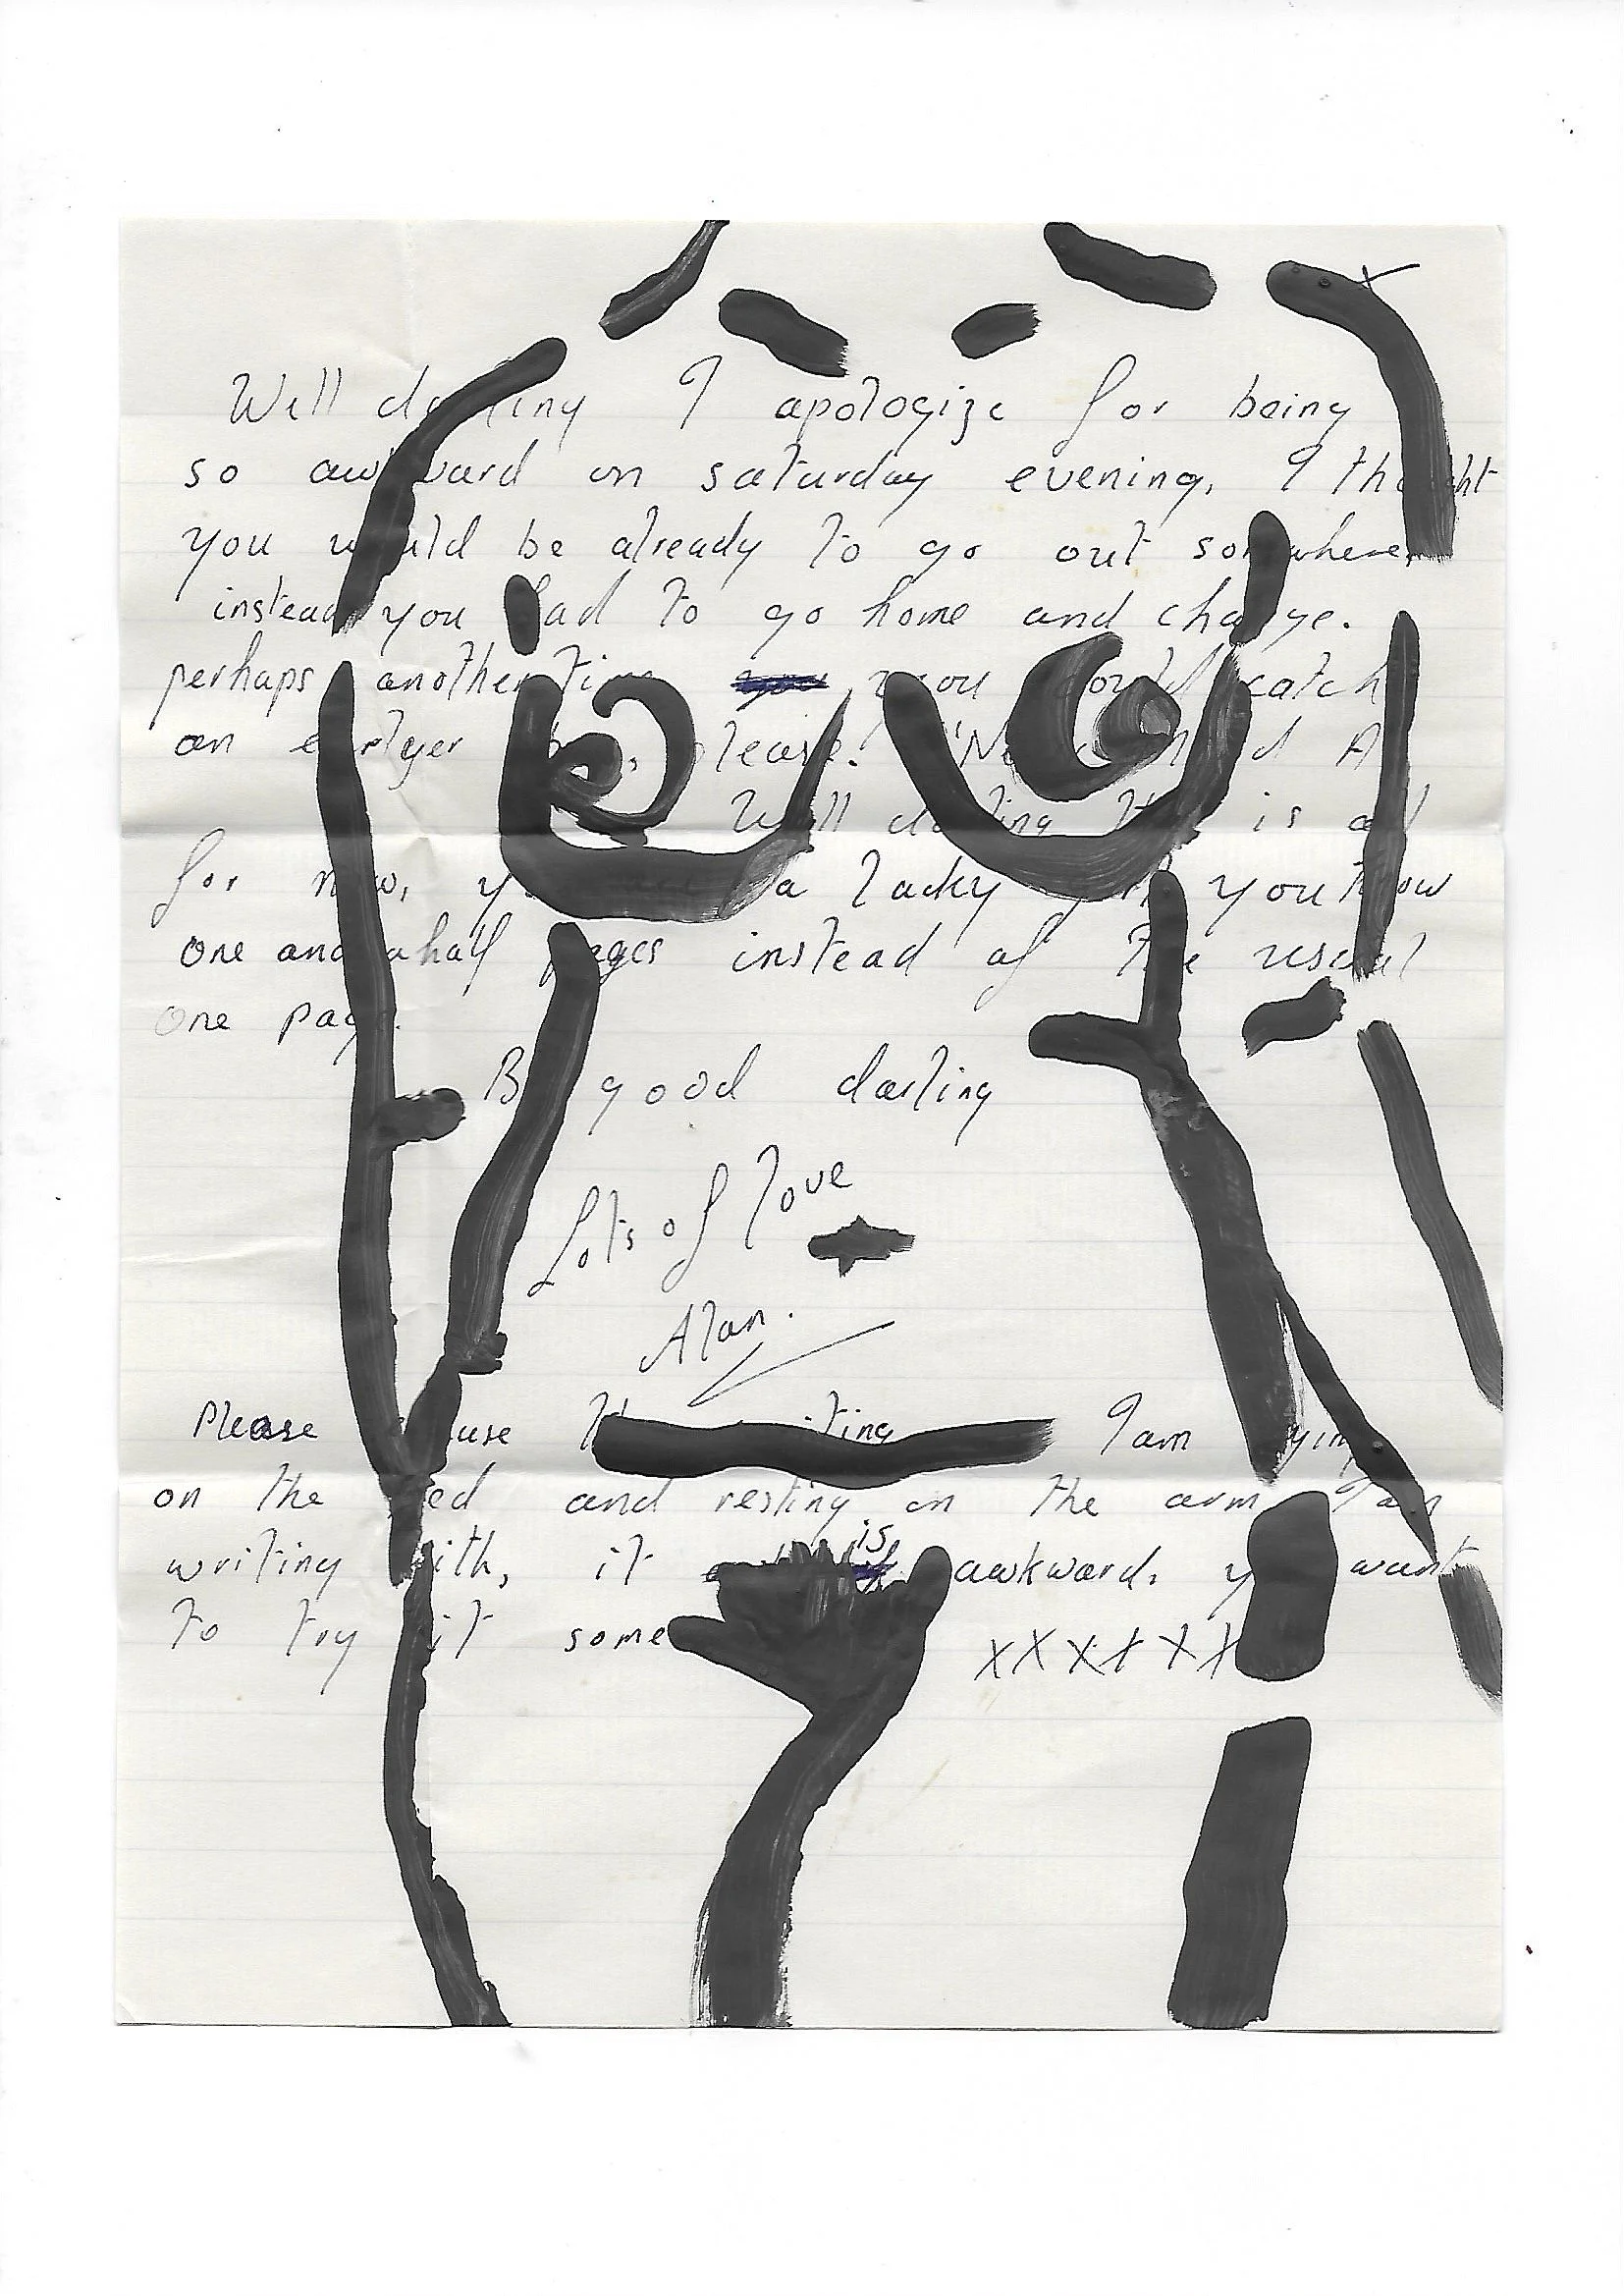 Well darling I apologize for being
so awkward on saturday evening, I thought
you would be already to go out somewhere
instead you had to go home and change.
perhaps another time you you could catch
an erlyer please.
Well darling that is all
for now, a lucky girl you know
one and a half pages instead of the usual
one page.
Be good darling
Lots of love
Alan.
Please excuse the writing I am lying
on the bed and resting on the arm I am
writing with, it is awkward, you want
to try it some
xxxxxx